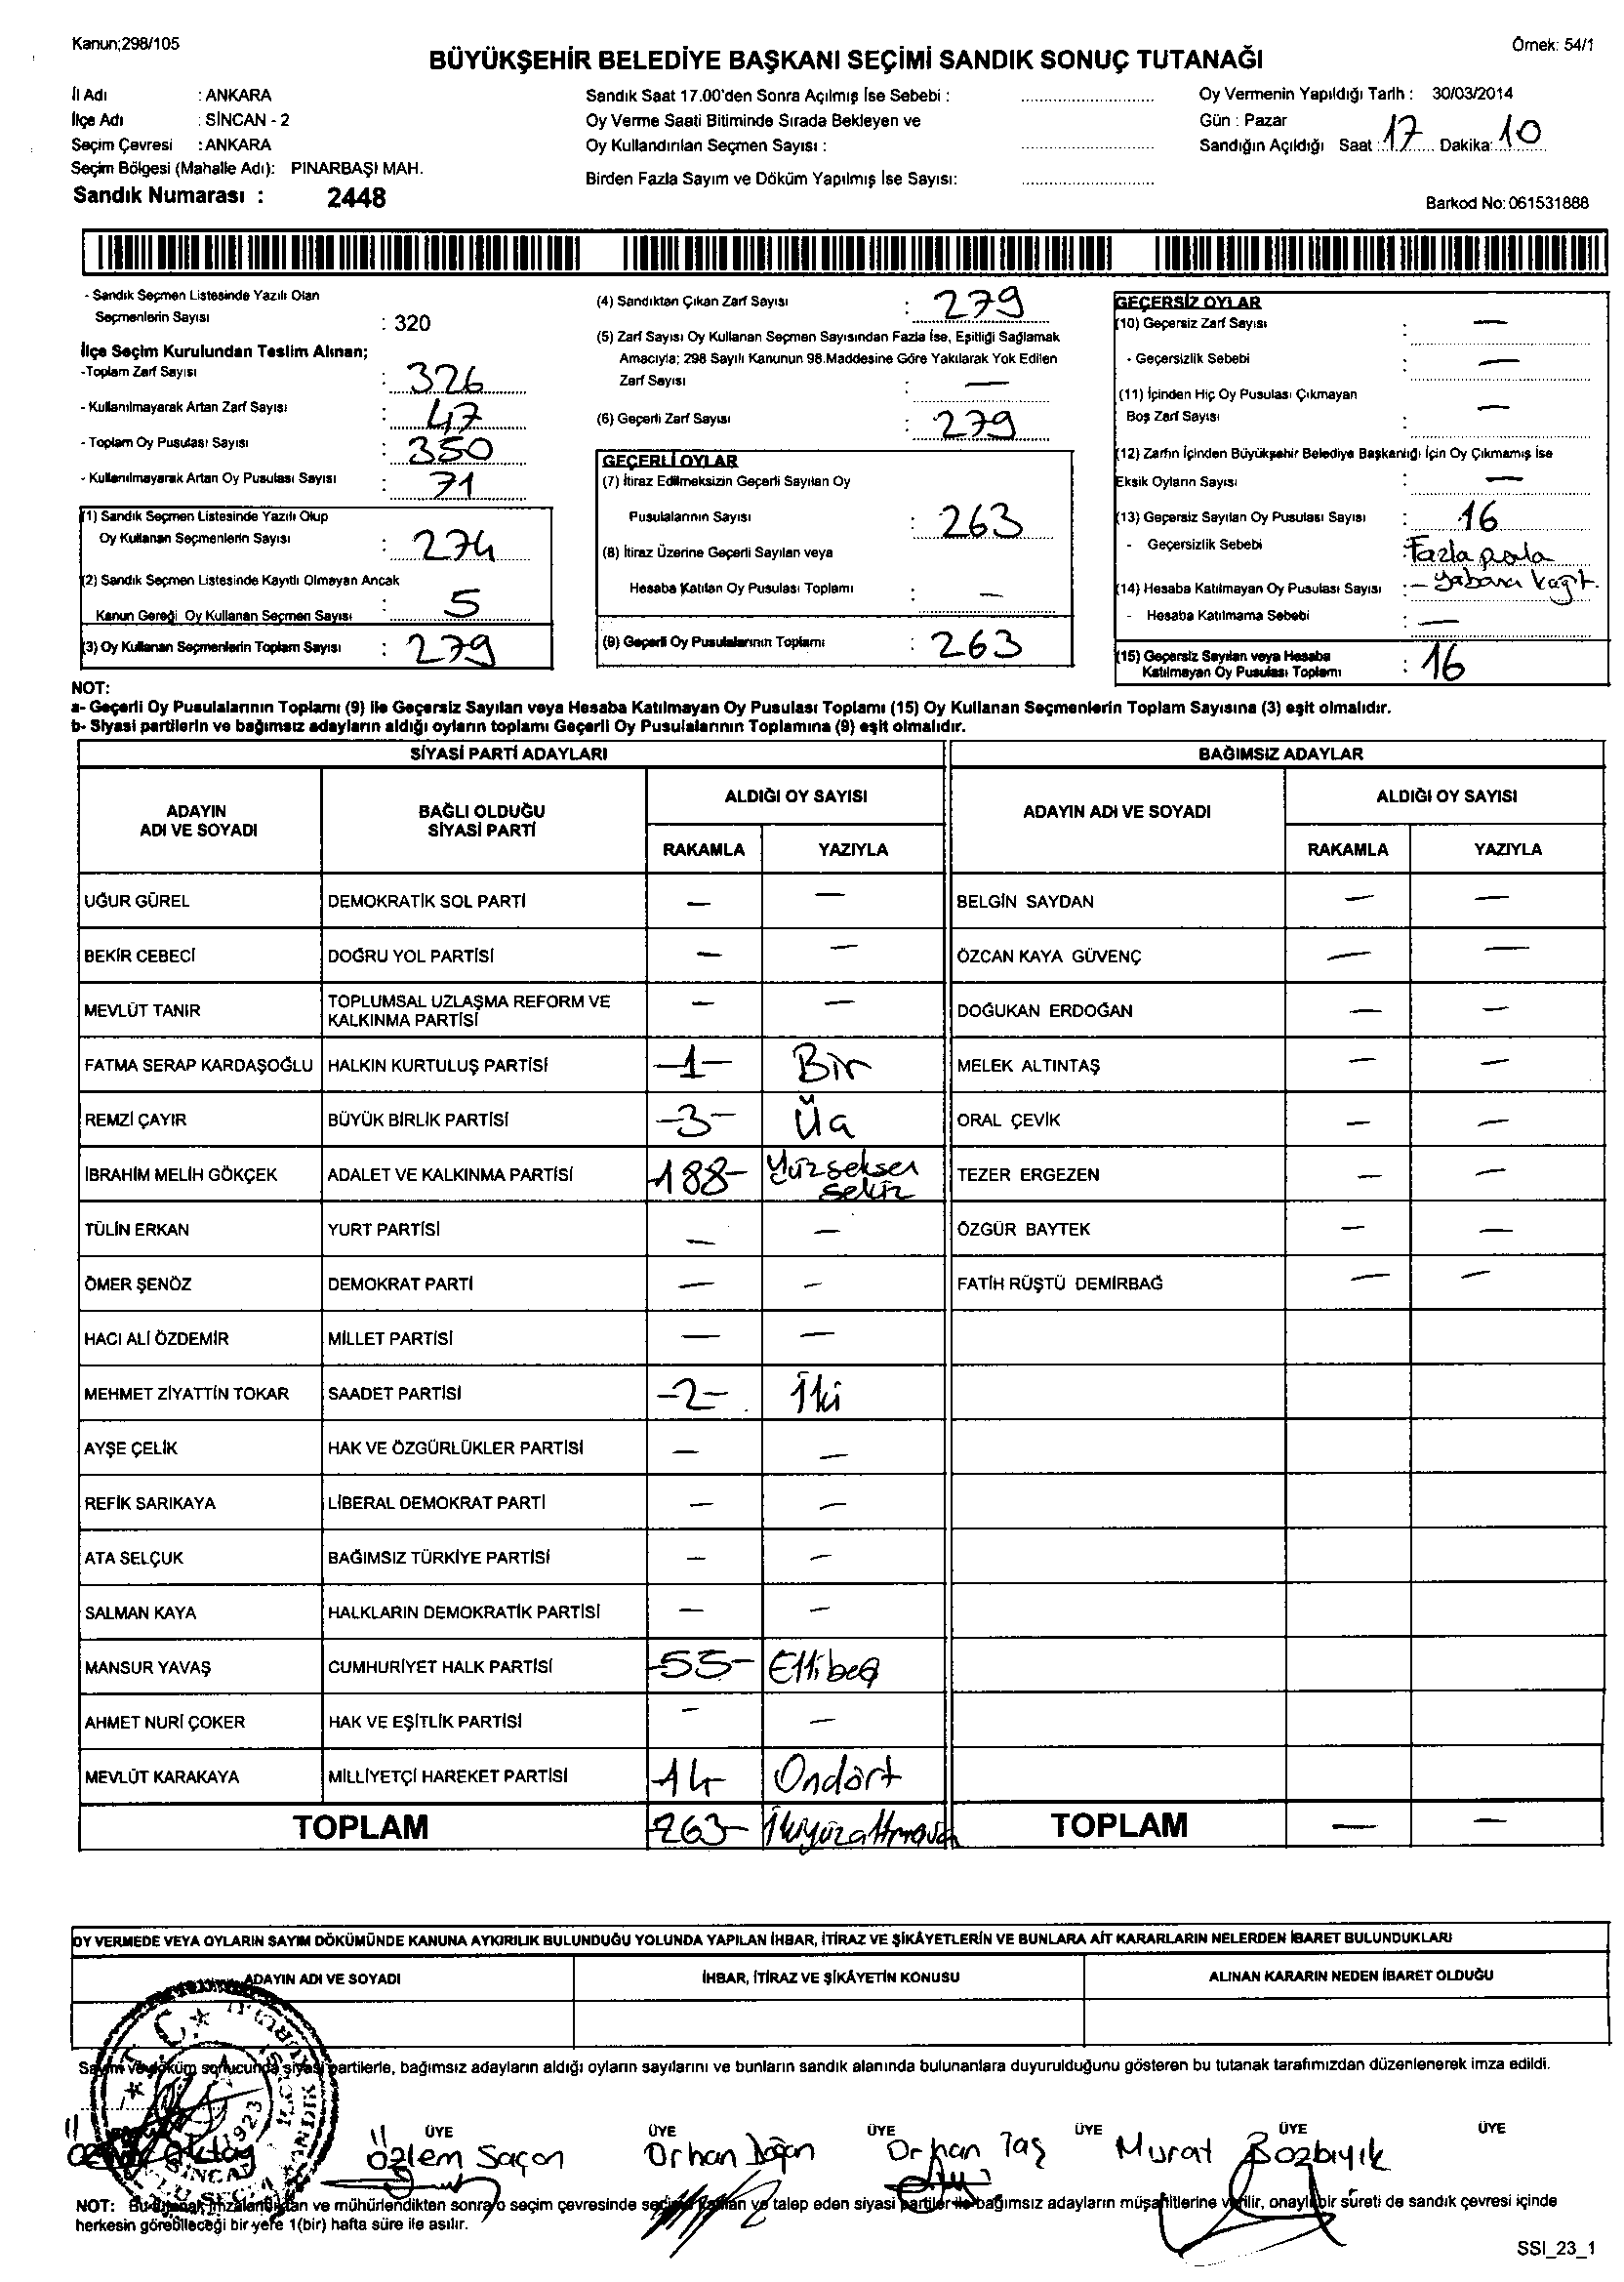 Kanun;298/105
Örnek: 54/1
BÜYÜKŞEHİR BELEDİYE BAŞKANI SEÇİMİ SANDIK SONUÇ TUTANAĞI
İl Adı : ANKARA
İlçe Adı : SİNCAN - 2
Seçim Çevresi : ANKARA
Seçim Bölgesi (Mahalle Adı): PINARBAŞI MAH.
Sandık Numarası : 2448
Sandık Saat 17.00'den Sonra Açılmış İse Sebebi :
Oy Verme Saati Bitiminde Sırada Bekleyen ve
Oy Kullandırılan Seçmen Sayısı :
Birden Fazla Sayım ve Döküm Yapılmış İse Sayısı:
Oy Vermenin Yapıldığı Tarih : 30/03/2014
Gün : Pazar
Sandığın Açıldığı Saat : 17 Dakika: 10
Barkod No: 061531888
- Sandık Seçmen Listesinde Yazılı Olan
Seçmenlerin Sayısı : 320
İlçe Seçim Kurulundan Teslim Alınan;
-Toplam Zarf Sayısı : 326
- Kullanılmayarak Artan Zarf Sayısı : 47
- Toplam Oy Pusulası Sayısı : 350
- Kullanılmayarak Artan Oy Pusulası Sayısı : 71
(1) Sandık Seçmen Listesinde Yazılı Olup
Oy Kullanan Seçmenlerin Sayısı : 274
(2) Sandık Seçmen Listesinde Kayıtlı Olmayan Ancak
Kanun Gereği Oy Kullanan Seçmen Sayısı : 5
(3) Oy Kullanan Seçmenlerin Toplam Sayısı : 279
(4) Sandıktan Çıkan Zarf Sayısı : 279
(5) Zarf Sayısı Oy Kullanan Seçmen Sayısından Fazla İse, Eşitliği Sağlamak
Amacıyla; 298 Sayılı Kanunun 98.Maddesine Göre Yakılarak Yok Edilen
Zarf Sayısı : —
(6) Geçerli Zarf Sayısı : 279
GEÇERLİ OYLAR
(7) İtiraz Edilmeksizin Geçerli Sayılan Oy
Pusulalarının Sayısı : 263
(8) İtiraz Üzerine Geçerli Sayılan veya
Hesaba Katılan Oy Pusulası Toplamı : —
(9) Geçerli Oy Pusulalarının Toplamı : 263
GEÇERSİZ OYLAR
(10) Geçersiz Zarf Sayısı : —
- Geçersizlik Sebebi : —
(11) İçinden Hiç Oy Pusulası Çıkmayan
Boş Zarf Sayısı : —
(12) Zarfın İçinden Büyükşehir Belediye Başkanlığı İçin Oy Çıkmamış İse
Eksik Oyların Sayısı : —
(13) Geçersiz Sayılan Oy Pusulası Sayısı : 16
- Geçersizlik Sebebi : Fazla
(14) Hesaba Katılmayan Oy Pusulası Sayısı : — yabancı kağıt.
- Hesaba Katılmama Sebebi : —
(15) Geçersiz Sayılan veya Hesaba
Katılmayan Oy Pusulası Toplamı : 16
NOT:
a- Geçerli Oy Pusulalarının Toplamı (9) ile Geçersiz Sayılan veya Hesaba Katılmayan Oy Pusulası Toplamı (15) Oy Kullanan Seçmenlerin Toplam Sayısına (3) eşit olmalıdır.
b- Siyasi partilerin ve bağımsız adayların aldığı oyların toplamı Geçerli Oy Pusulalarının Toplamına (9) eşit olmalıdır.
SİYASİ PARTİ ADAYLARI
BAĞIMSIZ ADAYLAR
ADAYIN
ADI VE SOYADI
BAĞLI OLDUĞU
SİYASİ PARTİ
ALDIĞI OY SAYISI
RAKAMLA YAZIYLA
ADAYIN ADI VE SOYADI
ALDIĞI OY SAYISI
RAKAMLA YAZIYLA
UĞUR GÜREL DEMOKRATİK SOL PARTİ — — BELGİN SAYDAN — —
BEKİR CEBECİ DOĞRU YOL PARTİSİ — — ÖZCAN KAYA GÜVENÇ — —
MEVLÜT TANIR TOPLUMSAL UZLAŞMA REFORM VE
KALKINMA PARTİSİ — — DOĞUKAN ERDOĞAN — —
FATMA SERAP KARDAŞOĞLU HALKIN KURTULUŞ PARTİSİ -1- Bir MELEK ALTINTAŞ — —
REMZİ ÇAYIR BÜYÜK BİRLİK PARTİSİ -3- Üç ORAL ÇEVİK — —
İBRAHİM MELİH GÖKÇEK ADALET VE KALKINMA PARTİSİ -188- Yüzseksen
sekiz TEZER ERGEZEN — —
TÜLİN ERKAN YURT PARTİSİ — — ÖZGÜR BAYTEK — —
ÖMER ŞENÖZ DEMOKRAT PARTİ — — FATİH RÜŞTÜ DEMİRBAĞ — —
HACI ALİ ÖZDEMİR MİLLET PARTİSİ — —
MEHMET ZİYATTİN TOKAR SAADET PARTİSİ -2- İki
AYŞE ÇELİK HAK VE ÖZGÜRLÜKLER PARTİSİ — —
REFİK SARIKAYA LİBERAL DEMOKRAT PARTİ — —
ATA SELÇUK BAĞIMSIZ TÜRKİYE PARTİSİ — —
SALMAN KAYA HALKLARIN DEMOKRATİK PARTİSİ — —
MANSUR YAVAŞ CUMHURİYET HALK PARTİSİ -55- Ellibeş
AHMET NURİ ÇOKER HAK VE EŞİTLİK PARTİSİ — —
MEVLÜT KARAKAYA MİLLİYETÇİ HAREKET PARTİSİ -14 Ondört
TOPLAM 263- İkiyüzatmışüç TOPLAM — —
OY VERMEDE VEYA OYLARIN SAYIM DÖKÜMÜNDE KANUNA AYKIRILIK BULUNDUĞU YOLUNDA YAPILAN İHBAR, İTİRAZ VE ŞİKÂYETLERİN VE BUNLARA AİT KARARLARIN NELERDEN İBARET BULUNDUKLARI
ADAYIN ADI VE SOYADI İHBAR, İTİRAZ VE ŞİKÂYETİN KONUSU ALINAN KARARIN NEDEN İBARET OLDUĞU
Sayım ve döküm sonucunda siyasi partilerle, bağımsız adayların aldığı oyların sayılarını ve bunların sandık alanında bulunanlara duyurulduğunu gösteren bu tutanak tarafımızdan düzenlenerek imza edildi.
ÜYE ÜYE ÜYE ÜYE ÜYE ÜYE
Özlem Saçan Orhan Doğan Orhan Taş Murat Bozbıyık
NOT: Bu tutanak imzalandıktan ve mühürlendikten sonra o seçim çevresinde seçime katılan ve talep eden siyasi partiler ile bağımsız adayların müşahitlerine verilir, onaylı bir süreti de sandık çevresi içinde
herkesin görebileceği bir yere 1(bir) hafta süre ile asılır.
SSI_23_1